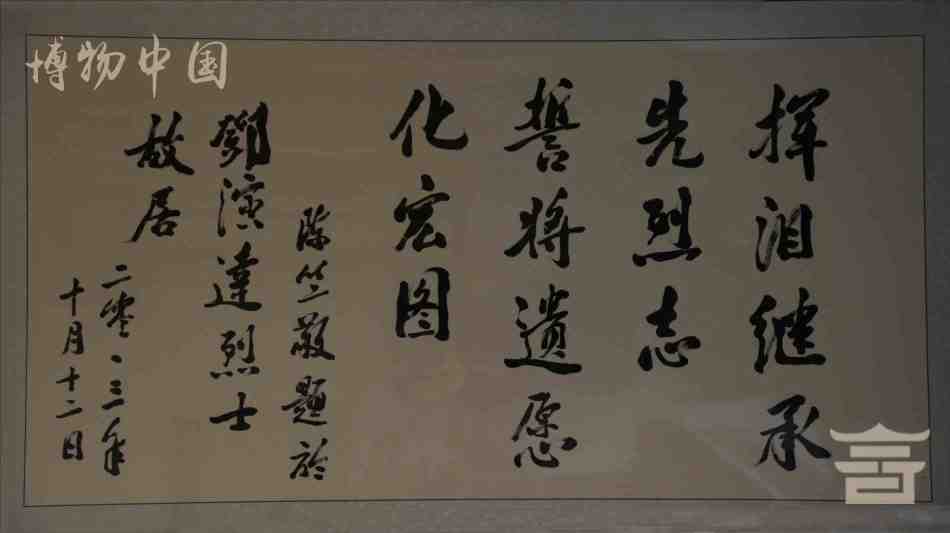 博物中国
挥泪继承
先烈志
誓将遗愿
化宏图
陈竺敬题於
鄧演達烈士
故居
二零一三年
十月十二日